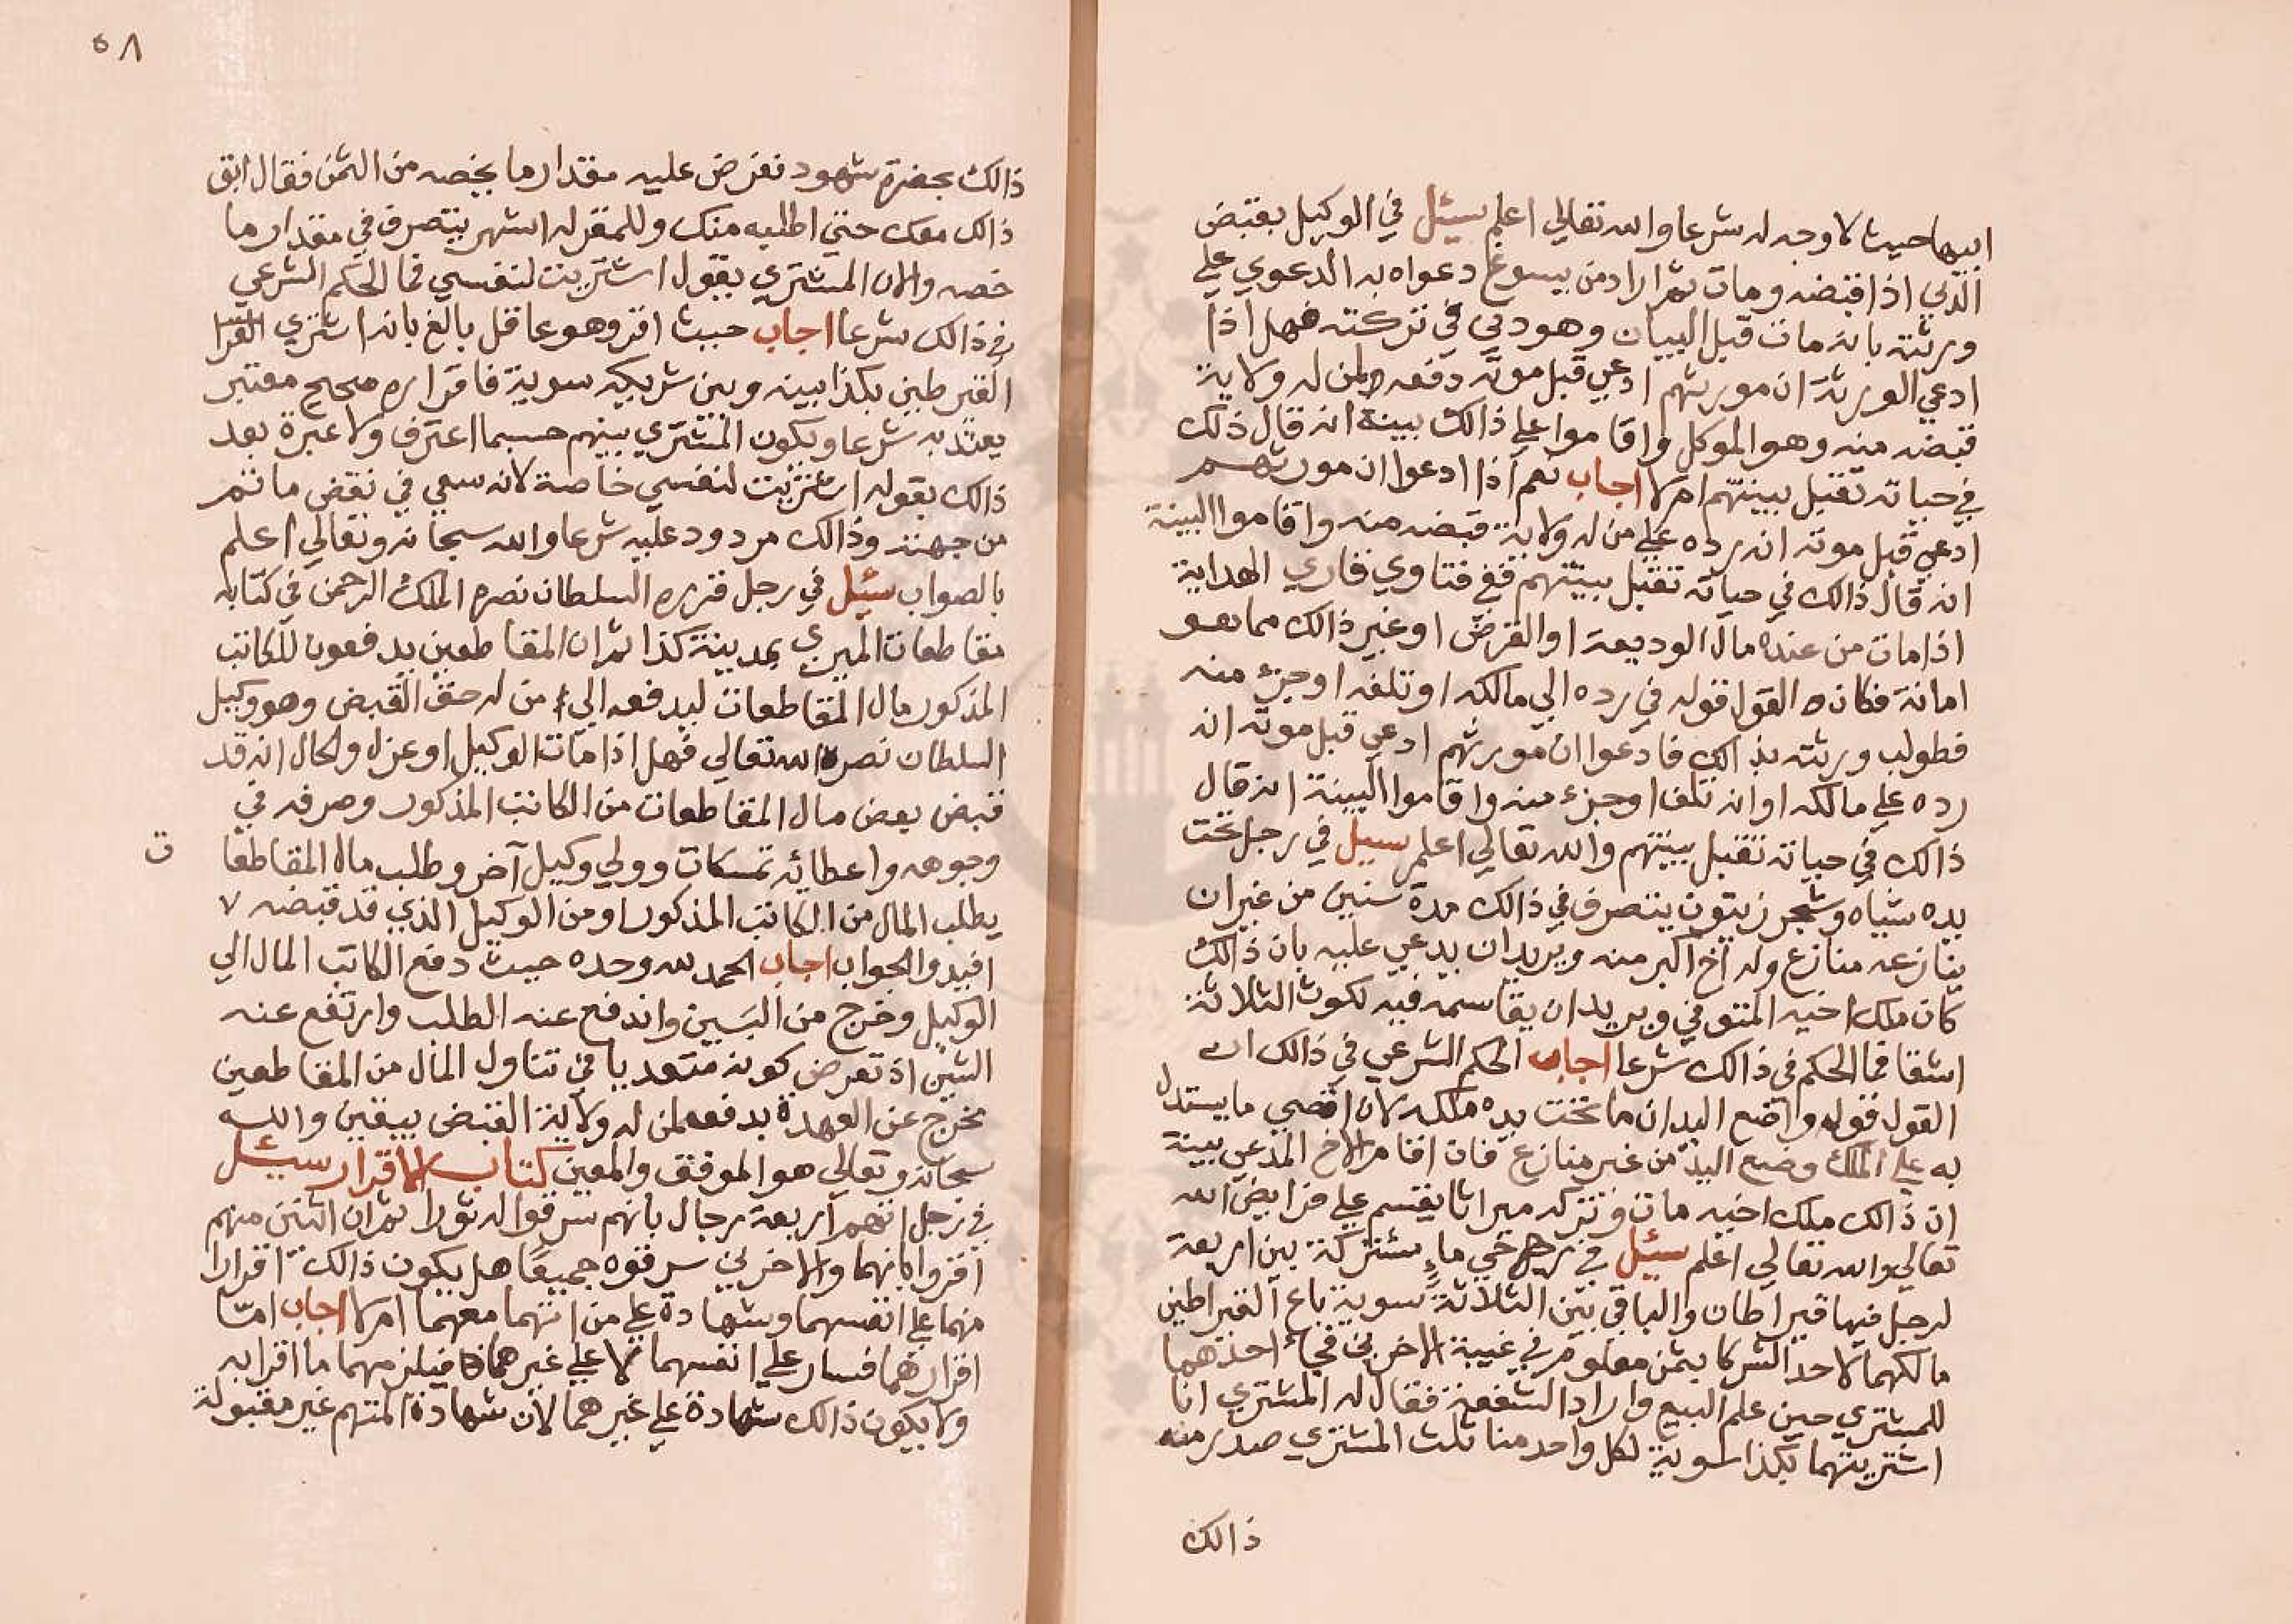 ابيها حيث لا وجه له شرعا والله تعالي اعلم سئيل في الوكيل بقبض
الدين اذا قبضه ومات ثم اراد من يسوغ دعواه به الدعوي علي
ورثته بانه مات قبل البيان وهو دين في تركته فهل اذا
ادعي الورثة ان مورثهم ادعي قبل موته دفعه لمن له ولاية
قبضه منه وهو الموكل واقاموا علي ذالك بينة انه قال ذلك
في حياته تقبل بينتهم ام لا اجاب نعم اذا ادعوا ان مورثهم
ادعي قبل موته انه رده علي من له ولاية قبضه منه واقاموا البينة
انه قال ذالك في حياته تقبل بينتهم ففي فتاوي قاري الهداية
اذا مات من عنده مال الوديعة او القرض او غير ذالك مما هو
امانة فكان القول قوله في رده الي مالكه او تلفه او جزء منه
فطولب ورثته بذالك فادعوا ان مورثهم ادعي قبل موته انه
رده علي مالكه او انه تلف او جزء منه واقاموا البينة انه قال
ذالك في حياته تقبل بينتهم والله تعالي اعلم سيل في رجل تحت
يده شياه وشجر زيتون يتصرف في ذالك مدة سنين من غير ان
ينازعه منازع وله اخ اكبر منه ويريد ان يدعي عليه بان ذالك
كان ملك اخيه المتوفي ويريد ان يقاسمه فيه لكون الثلاثة
اشقا فما الحكم في ذالك شرعا اجاب الحكم الشرعي في ذالك ان
القول قوله واضع اليد ان ما تحت يده ملكه لان اقصي ما يستدل
به علي الملك وضع اليد من غير منازع فان اقام الاخ المدعي بينة
ان ذالك ملك اخيه مات وتركه ميراثا يقسم علي فرايض الله
تعالي والله تعالي اعلم سئيل في رحي ماء مشتركة بين اربعة
لرجل فيها قيراطان والباقي بين الثلاثة سوية باع القيراطين
مالكهما لاحد الشركا بثمن معلوم في غيبة الاخرين فجاء احدهما
للمشتري حين علم البيع واراد الشفعة فقال له المشتري انا
اشتريتهما بكذا سوية لكل واحد منا ثلث المشتري صدر منه
ذالك
٥٨
ذالك بحضرة شهود فعرض عليه مقدار ما يخصه من الثمن فقال ابق
ذالك معك حتي اطلبه منك وللمقر له اشهر يتصرف في مقدار ما
خصه والان المشتري يقول اشتريت لنفسي فما الحكم الشرعي
في ذالك شرعا اجاب حيث اقر وهو عاقل بالغ بانه اشتري
القيرطين بكذا بينه وبين شريكيه سوية فاقراره صحيح معتبر
يعتد به شرعا ويكون المشتري بينهم حسبما اعترف ولا عبرة بعد
ذالك بقوله اشتريت لنفسي خاصة لانه سعي في نقض ما تم
من جهته وذالك مردود عليه شرعا والله سبحانه وتعالي اعلم
بالصواب سئيل في رجل قرره السلطان نصره الملك الرحمن في كتابه
مقاطعات الميري بمدينة كذا ثم ان المقاطعين يدفعون للكاتب
المذكور مال المقاطعات ليدفعه الي من له حق القبض وهو وكيل
السلطان نصره الله تعالي فهل اذا مات الوكيل او عزل والحال انه قد
قبض بعض مال المقاطعات من الكاتب المذكور وصرفه في
وجوهه واعطائه تمسكات وولي وكيل آخر وطلب مال المقاطعا
ت
يطلب المال من الكاتب المذكور او من الوكيل الذي قد قبضه
افيدوا الجواب اجاب الحمد لله وحده حيث دفع الكاتب المال الي
الوكيل وخرج من البين واندفع عنه الطلب وارتفع عنه
الشين اذ تعرض كونه متعديا في تناول المال من المقاطعين
مخرج عن العهدة بدفعه لمن له ولاية القبض بيقين والله
سبحانه وتعالي هو الموفق والمعين كتاب الاقرار سيئل
في رجل اتهم اربعة رجال بانهم سرقوا له ثورا ثم ان اثنين منهم
اقروا بانهما والاخرين سرقوه جميعًا هل يكون ذالك اقرارا
منهما علي انفسهما وشهادة علي من اتهما معهما ام لا اجاب امّا
اقرارهما فسار علي انفسهما لا علي غيرهما فيلزمهما ما اقرا به
ولا يكون ذالك شهادة علي غيرهما لان شهادة المتهم غير مقبولة